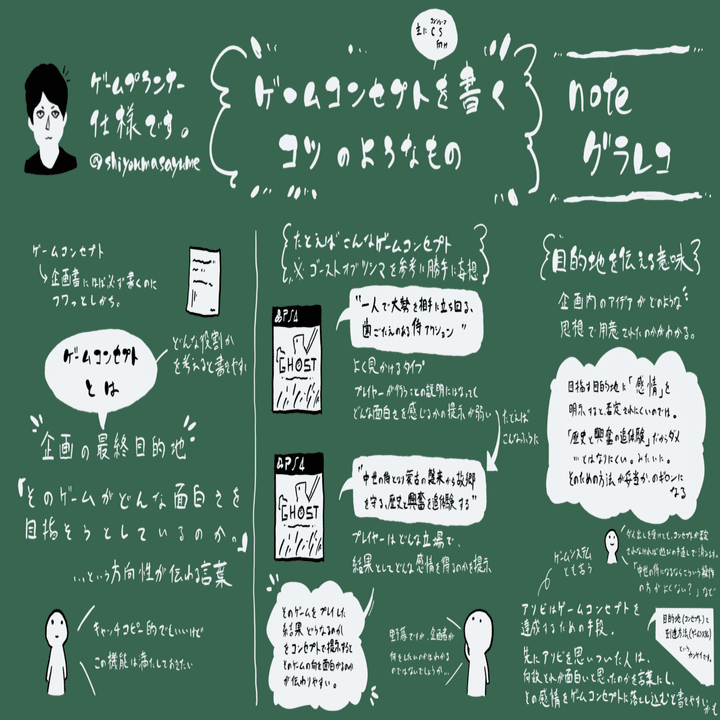 ゲームプランナー
仕様です。
@shiyoumasayume
主に
CS
ゲームコンセプトを書く
コツのようなもの
note
グラレコ
ゲームコンセプト
企画書にほぼ必ず書くのに
フワッとしがち。
どんな役割か
を考えると書きやすい
ゲームコンセプト
とは
企画の最終目的地
「そのゲームがどんな面白さを
目指そうとしているのか。」
…という方向性が伝わる言葉
キャッチコピー的でもいいけど
この機能は満たしておきたい
たとえばこんなゲームコンセプト
※ゴーストオブツシマを参考に勝手に妄想
PS4
GHOST
"一人で大勢を相手に立ち回る、
歯ごたえのある侍アクション"
よく見かけるタイプ
プレイヤーが行うことの説明にはなってても
どんな面白さを感じるかの提示が弱い
たとえば
こんなふうに
PS4
GHOST
"中世の侍となり蒙古の襲来から故郷
を守る、歴史と興奮を追体験する"
プレイヤーはどんな立場で、
結果としてどんな感情を得るのかを提示
そのゲームをプレイした
結果どうなるのか
をコンセプトで提示すると
そのゲームの何を面白がるのか
が伝わりやすい。
企画者が
何をしたいのかはわかる
のではないでしょうか…
目的地を伝える意味
企画内のアイデアがどのような
思想で用意されたのかがわかる。
目指す目的地に「感情」を
明示すると、否定されにくいのでは。
「歴史と興奮の追体験」だからダメ
…とはなりにくい。みたいに。
そのための方法が妥当か、のギロンに
なる
ゲームシステム
とも言う
「中世の侍になるならこういう操作
の方がよくない?」など
アソビはゲームコンセプトを
達成するための手段。
目的地(コンセプト)と
到達方法(ゲームシステム)
という
先にアソビを思いついた人は、
何故それが面白いと思ったのかを言葉にし、
その感情をゲームコンセプトに落とし込むと書きやすいかも